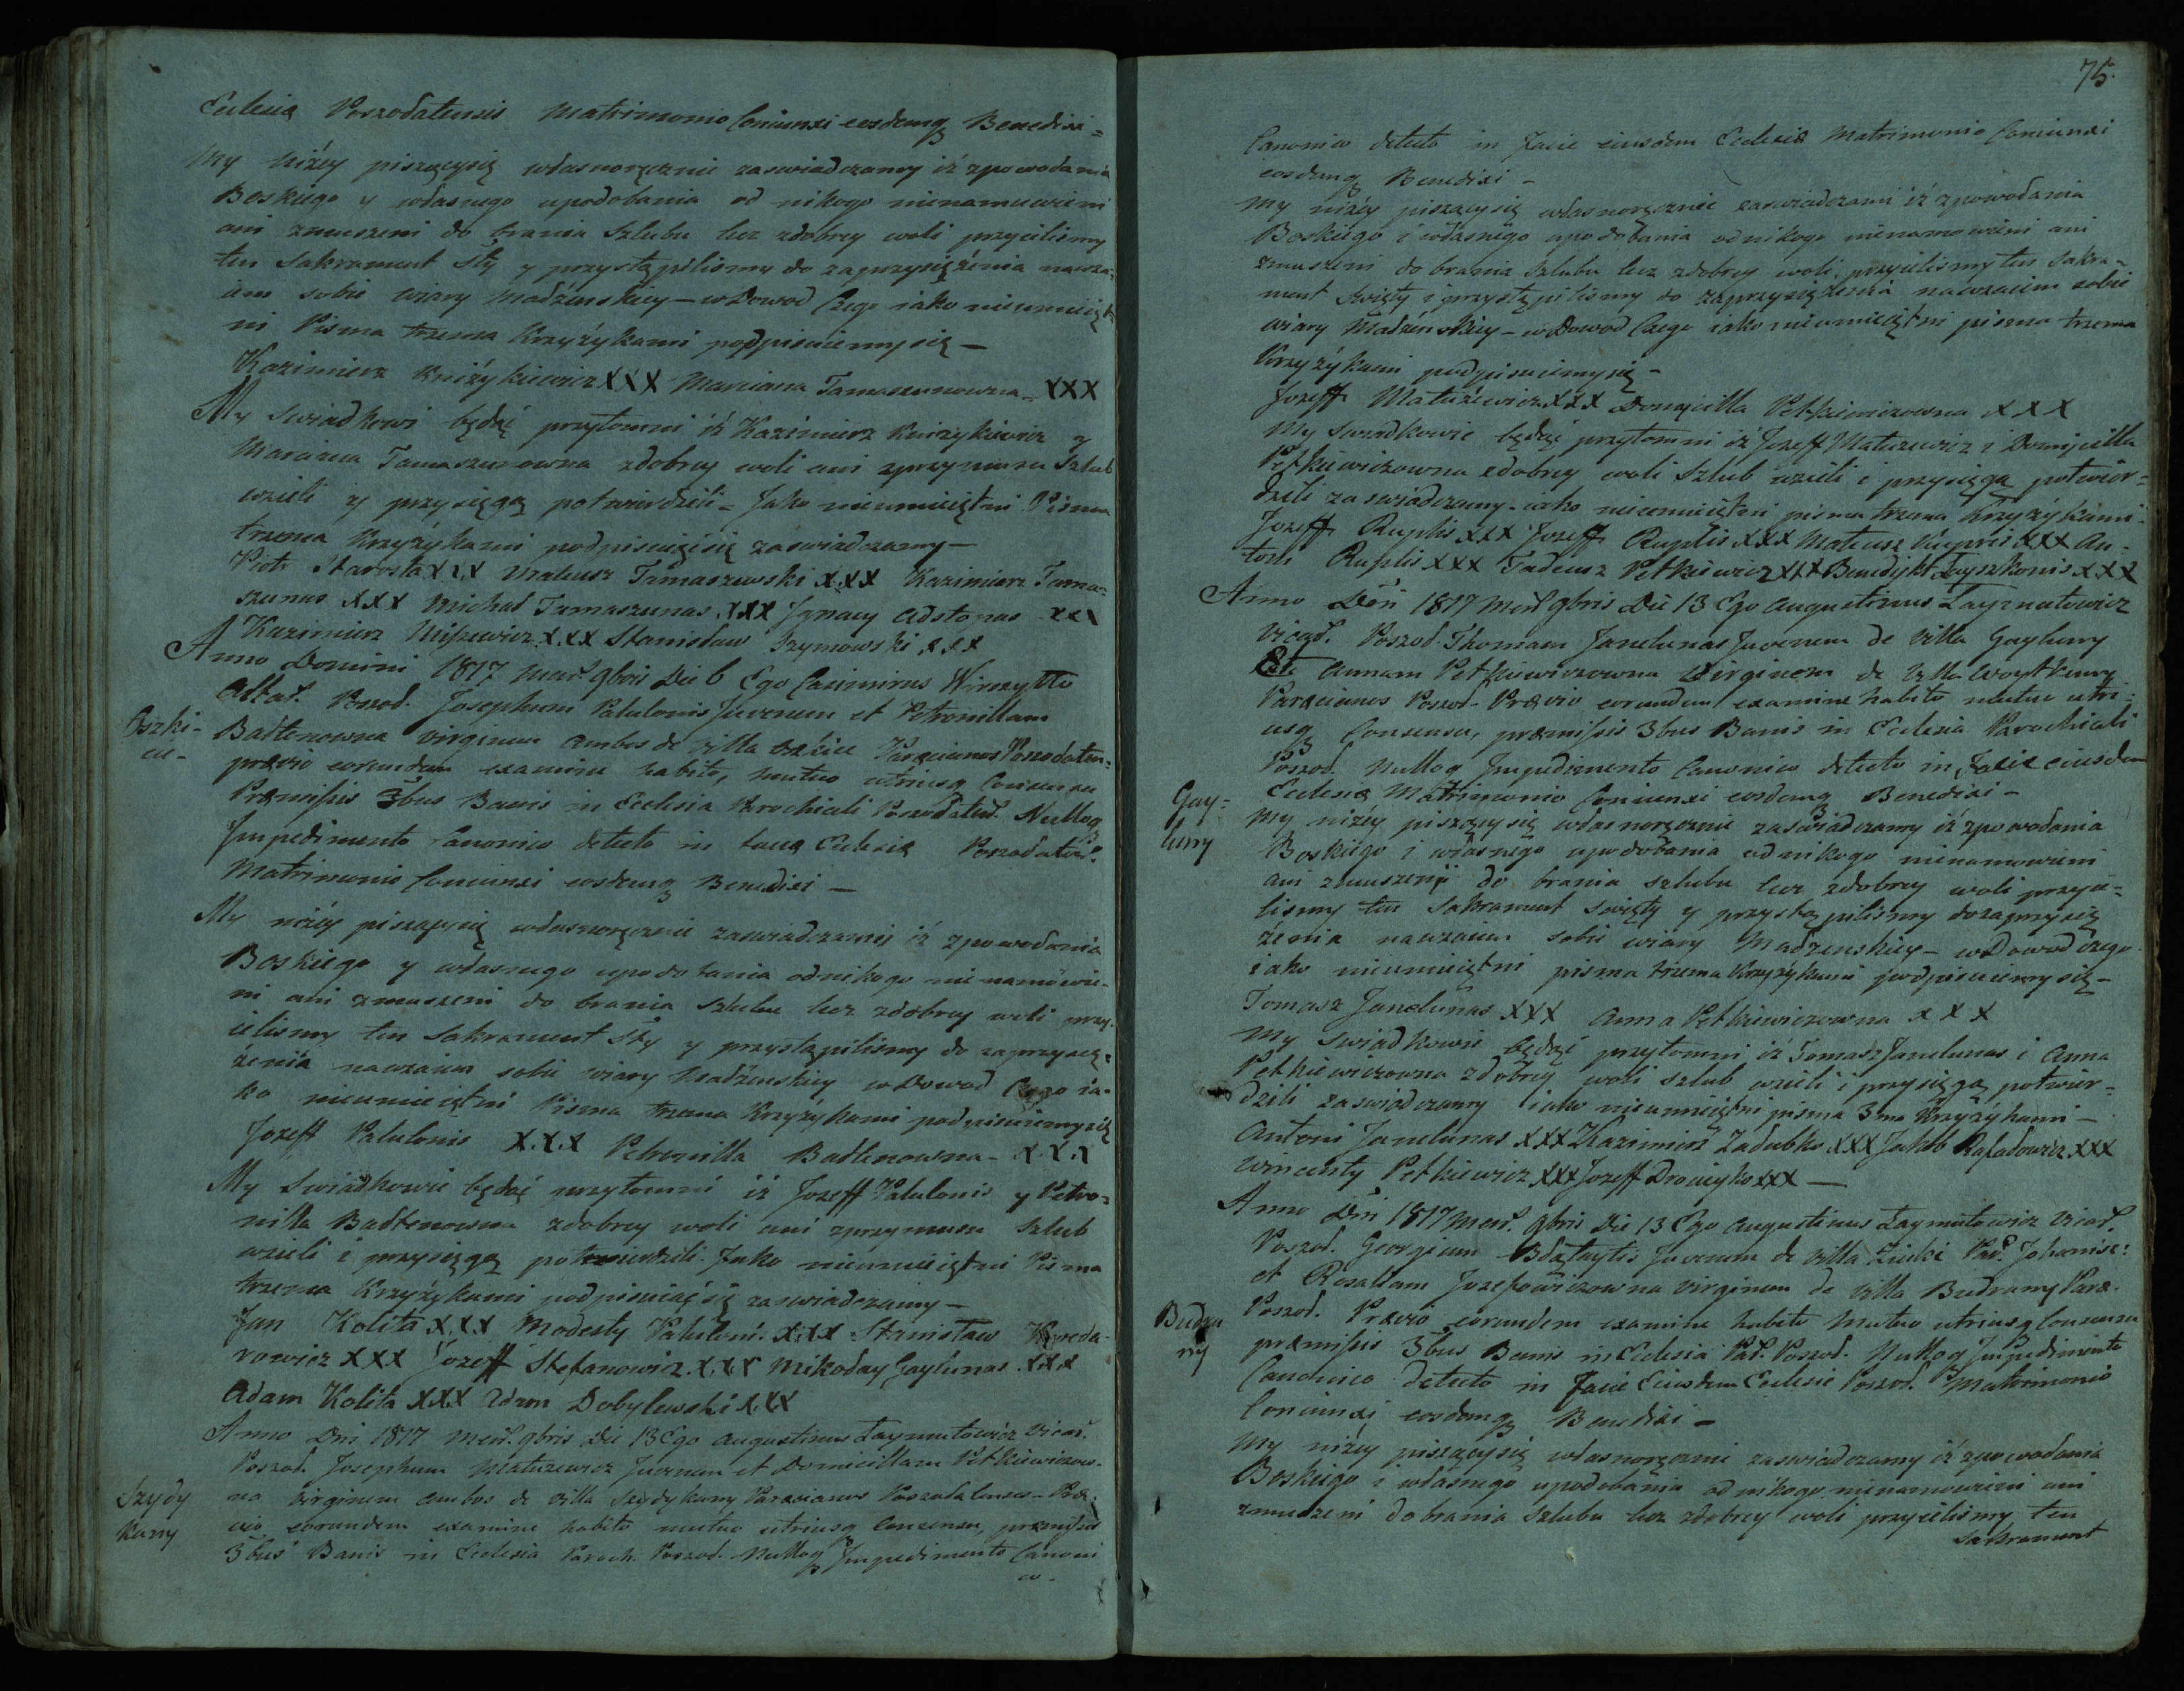 Ecclesia Poszodatensis Matrimonio Coniunxi eosdemq Benedixi =
My niżey piszącysię własnoręcznie zaswiadczamy iż zpowodania
Boskiego y własnego upodobania od nikogo nienamuwieni
ani zmuszeni do brania Szlubu lecz zdobrey woli przyielismy
ten Sakrament Sty y przystąpilismy do zaprzysiężenia nawza-
iem sobie wiary Małżenskiey – w Dowod Czego iako nieumieięt
ni Pisma trzema Krzyżykami podpisuiemysię –
Kazimierz Kniżykiewicz XXX Maryanna Tamaszunowna – XXX
My Swiadkowi będąc przytomni iż Kazimierz Kniżykiewicz y
Maryanna Tamaszunowna zdobrey woli ani zprzymusu Szlub
wzieli y przysięgą potwierdzili – Jako nieumieiętni Pisma
trzema Krzyżykami podpisuiącsię zaswiadczamy –
Piotr Starosta XXX Mateusz Tamaszewski XXX Kazimierz Tama-
szunas XXX Michał Tamaszunas XXX Jgnacy Adstonas XXX
Kazimierz XXX Stanisław Szymowski XXX
Anno Domini 1817 Mens. 9bris Die 6 Ego Casimirus Wirszytto
Altar. Poszod. Josephum Palulonis Juvenem et Petronillam
Badtenowna virginem ambos de villa Parœcianos Poszodaten=
prævio eorundem examine habito, mutuo utriusq Consensu
Præmissis 3bus Bannis in Ecclesia Parochiali Poszodaten. Nulloq
Impedimento Canonico detecto in Ecclesia Poszodaten.
Matrimonio Coniunxi eosdemq Benedixi –
My niżey piszącysię własnoręcznie zaswiadczamy iż zpowodania
Boskiego y własnego upodobania odnikogo nie namówie-
ni ani zmuszeni do brania Szlubu lecz zdobrey woli przy-
ielismy ten Sakrament Sty y przystąpilismy do zaprzysię=
żenia nawzaiem sobie wiary Małżenskiey w Dowod Czego ia-
ko nieumieiętni Pisma trzema Krzyżykami podpisuiemysię
Jozeff Palulonis X.X.X Petronilla Badtenowna – X.X.X
My Swiadkowie będąc przytomni iż Jozeff Palulonis y Petro=
nilla Badtenowna zdobrey woli ani zprzymusu Szlub
wzieli i przysięgą potwierdzili Jako nieumieiętni Pisma
trzema Krzyżykami podpisuiąć się zaswiadczamy –
Jan Kolita X.X.X Modesty Paluloni. X.X.X Stanisław
rowicz XXX Jozeff Stefanowicz X.X.X Mikołay Gaylunas XXX
Adam Kolita XXX Adam Dobylewski X.XX
Anno Dni 1817 Mens. 9bris Die 13 Ego Augustinus Zaymutowicz Vicar.
Poszod. Josephum Matuzewicz Juvenem et Domicillam Petkiewiczow-
Szydy
Kany
na Virginem ambos de villa Szydykany Parœcianos Poszodatenses – Præ-
vio eorundem examine habito mutuo utriusq Consensu, præmissis
3bus Banis in Ecclesia Paroch. Poszod. Nulloq Impedimento Canoni
co.
75.
Canonico detecto in Facie eiusdem Ecclesiæ Matrimonio Coniunxi
eosdemq Benedixi –
My niżey piszącysię własnoręcznie zaswiadczami iż zpowodania
Boskiego i własnego upodobania odnikogo nienamowieni ani
zmuszeni do brania Szlubu lecz zdobrey woli, przyielismy ten Sakra-
ment Swięty i przystąpilismy do zaprzysiężenia nawzaiem sobie
wiary Małżenskiey – w Dowod Czego iako nieumieiętni pisma trzema
Krzyżykami podpisuiemysię –
Jozeff Matuzewicz XXX Domicilla Petkiewiczowna XXX
My Swiadkowie będąc przytomni iż Jozeff Matuzewicz i Domicilla
Petkiewiczowna zdobrey woli Szlub wzieli i przysięgą potwier=
dzili zaswiadczamy – iako nieumieiętni pisma trzema Krzyżykami –
Jozeff Ruplis XXX Jozeff Ruplis XXX Mateusz XXX An-
toni Ruplis XXX Tadeusz Petkiewicz XXX Benedykt XXX
Anno Dni 1817 Mens. 9bris Die 13 Ego Augustinus Zaymutowicz
Vicar. Poszod. Thomam Janelunas Juvenem de Villa Gayluny
Et Annam Petkiewiczowna Virginem de Villa Woytkuny
Parœcianos Poszod. Prævio eorundem examine habito mutuo utri=
usq Consensu, præmissis 3bus Banis in Ecclesia Parochiali
Poszod. Nulloq Impedimento Canonico detecto in Facie eiusdem
Gay=
luny
Ecclesiæ Matrimonio Coniunxi eosdemq Benedixi –
My niżey piszącysię własnoręcznie zaswiadczamy iż zpowodania
Boskiego i własnego upodobania odnikogo nienamowieni
ani zmuszeni do brania szlubu lecz zdobrey woli przyie=
lismy ten Sakrament Swięty y przystąpilismy dozaprzysię
żenia nawzaiem sobie wiary Małżenskiey – w Dowod Czego
iako nieumieiętni pisma trzema Krzyżykami podpisuiemysię –
Tomasz Janelunas XXX Anna Petkiewiczowna XXX
My Swiadkowie będąc przytomni iż Tomasz Janelunas i Anna
Petkiewiczowna zdobrey woli szlub wzieli i przysięgą potwier=
dzili zaswiadczamy iako nieumieiętni pisma 3ma Krzyżykami –
Antoni Janelunas XXX Kazimierz Zadubko XXX Jakub Rafadowicz XXX
Wincenty Petkiewicz XXX Jozeff XXX –
Anno Dni 1817 Mens. 9bris Die 13 Ego Augustinus Zaymutowicz Vicar.
Poszod. Georgium Juvenem de Villa Par. Johanisz:
et Rosaliam Josefowiczowna Virginem de Villa Budrany Paræ-
Budra
ny
Poszod. Prævio eorundem examine habito Mutuo utriusq Consensu
præmissis 3bus Banis in Ecclesia Par. Poszod. Nulloq Impedimento
Canonico detecto in Facie Eiusdem Ecclesiæ Poszod. Matrimonio
Coniunxi eosdemq Benedixi –
My niżey piszącysię własnoręcznie zaswiadczamy iż zpowodania
Boskiego i własnego upodobania odnikogo nienamowieni ani
zmuszeni do brania Szlubu lecz zdobrey woli przyielismy ten
Sakrament